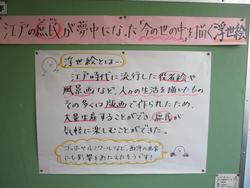 江戸の庶民が夢中になった"今の世の中を描く浮世絵
浮世絵とは…
江戸時代に流行した役者絵や
風景画など、人々の生活を描いたもの
その多くは版画で作られたため、
大量生産することができ、庶民が
気軽に楽しむことができた。
ゴッホやルノワールなど、西洋の画家
にも影響をあたえたそうです!